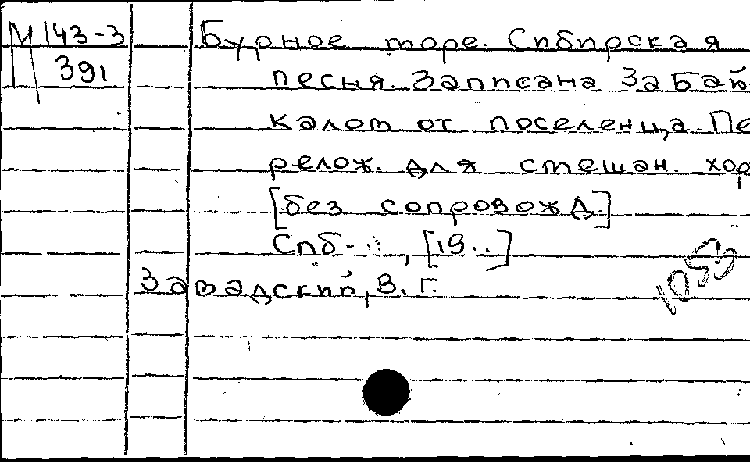 М 143-3 Бурное море. Сибирская
391 песня. Записана За Бай
калом от поселенца. Пе
релож. для смешан. хор
[без сопровожд.]
Спб-, [19..]
Завадский, В. Г.
1053